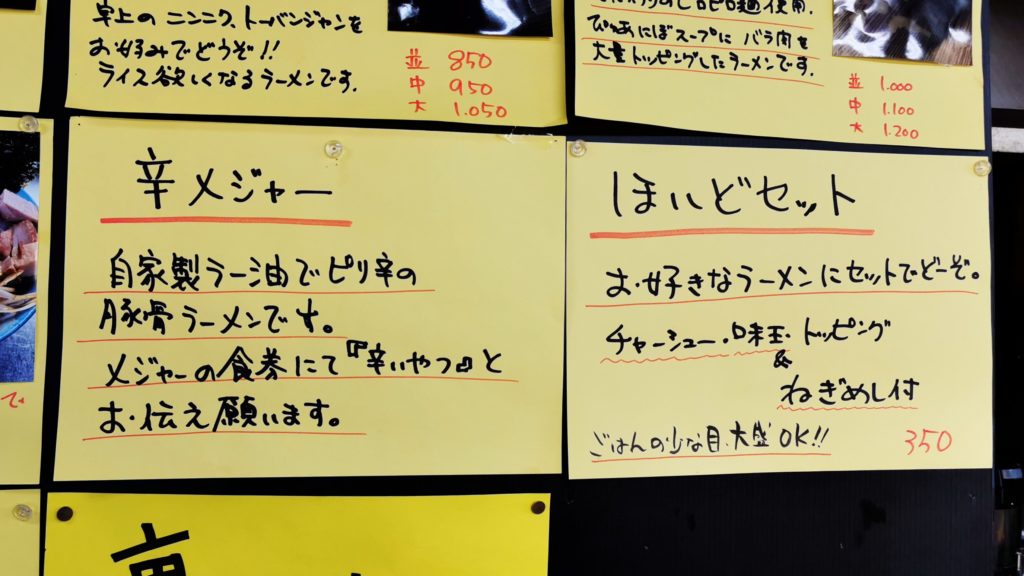 卓上のニンニク、トーバンジャンを
お好みでどうぞ!!
ライス欲しくなるラーメンです。
並 850
中 950
大 1.050
使用.
スープに バラ肉を
大量トッピングしたラーメンです.
並 1.000
中 1.100
大 1.200
辛メジャー
自家製ラー油でピリ辛の
豚骨ラーメンです。
メジャーの食券にて『辛いやつ』と
お伝え願います。
ほいどセット
お好きなラーメンにセットでどーぞ。
チャーシュー・味玉・トッピング
&
ねぎめし付
ごはんの少な目、大盛OK!!
350
で